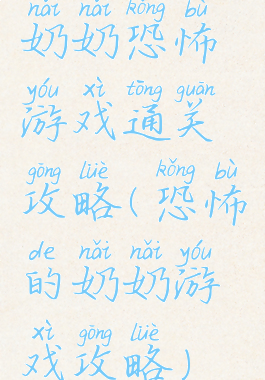 nǎi nǎi kǒng bù
奶奶恐怖
yóu xì tōng guān
游戏通关
gōng lüè kǒng bù
攻略(恐怖
de nǎi nǎi yóu
的奶奶游
xì gōng lüè
戏攻略)